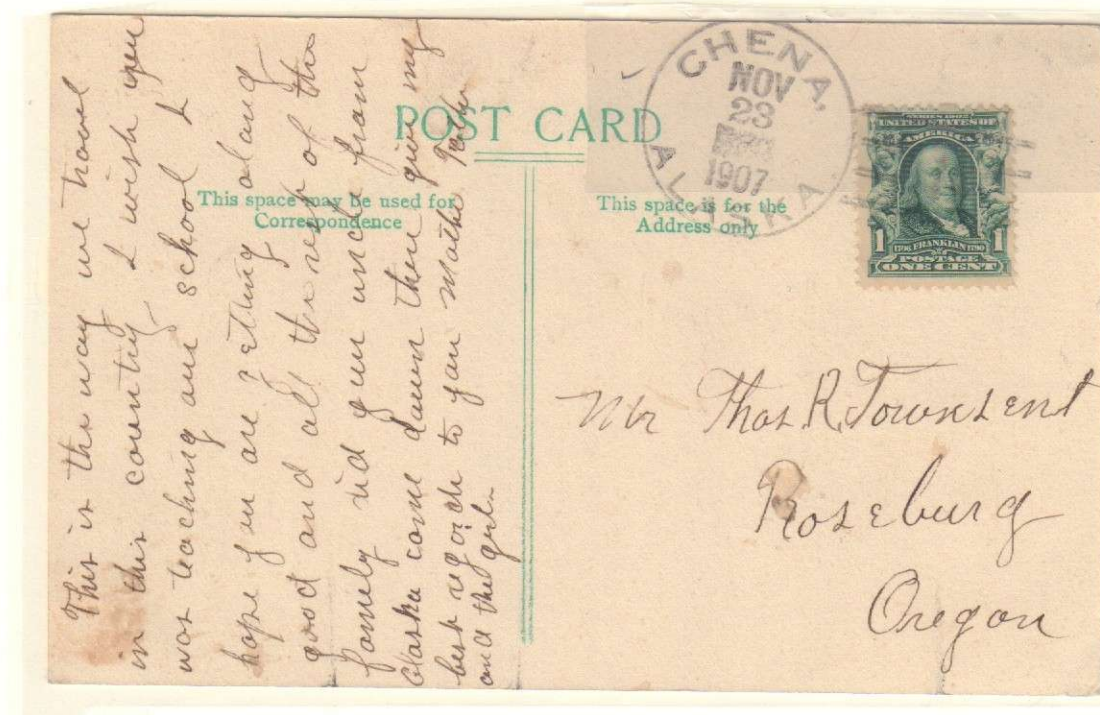 POST CARD
This space may be used for
Correspondence
This space is for the
Address only
CHENA,
NOV
23
1907
ALASKA
SERIES 1902
UNITED STATES OF
AMERICA
1 1706 FRANKLIN 1790 1
POSTAGE
ONE CENT
This is the way we travel
in this country I wish you
was teaching our school I
hope you are getting along
good and all the rest of the
famely did your uncle from
Claska come down there give my
best regards to you mothe Father
and the girls
Mr Thos R. Townsent
Roseburg
Oregon